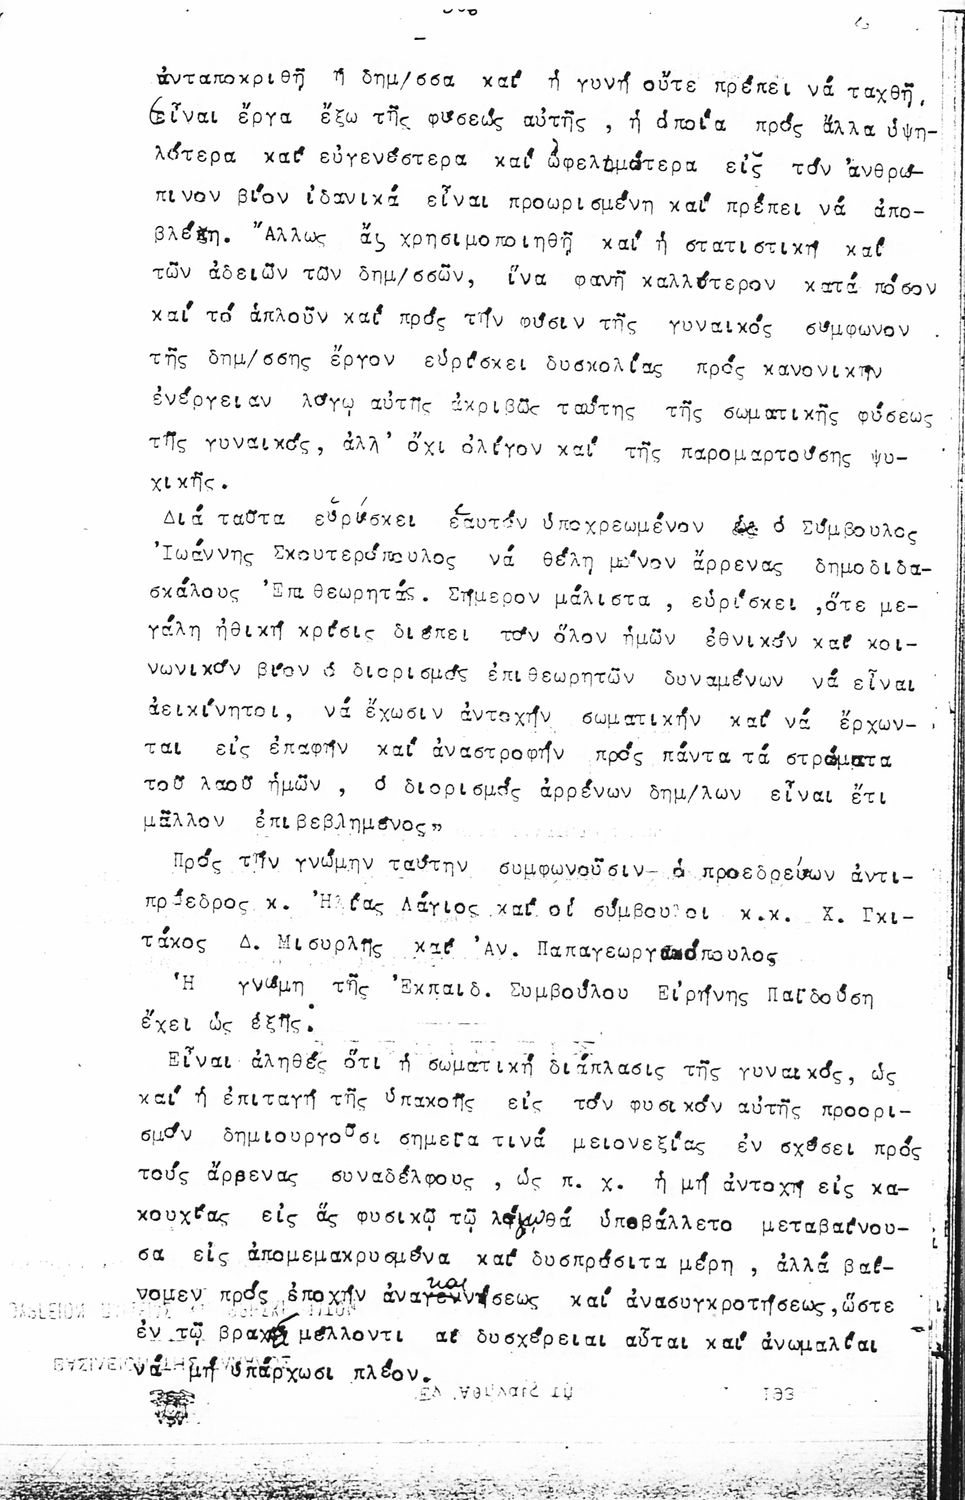 ἀνταποκριθῇ ἡ δημ/σσα καί ἡ γυνή οὔτε πρέπει νά ταχθῇ,
εἶναι ἔργα ἔξω τῆς φύσεώς αὐτῆς , ἡ ὁποία πρός ἄλλα ὑψη-
λότερα καί εὐγενέστερα καί ὠφελιμώτερα εἰς τόν ἀνθρώ-
πινον βίον ἰδανικά εἶναι προωρισμένη καί πρέπει νά ἀπο-
βλέπῃ. Ἄλλως ἄς χρησιμοποιηθῇ καί ἡ στατιστική καί
τῶν ἀδειῶν τῶν δημ/σσῶν, ἵνα φανῇ καλλύτερον κατά πόσον
καί τό ἁπλοῦν καί πρός τήν φύσιν τῆς γυναικός σύμφωνον
τῆς δημ/σσης ἔργον εὑρίσκει δυσκολίας πρός κανονικήν
ἐνέργειαν λόγῳ αὐτῆς ἀκριβῶς ταύτης τῆς σωματικῆς φύσεως
τῆς γυναικός, ἀλλ' ὄχι ὀλίγον καί τῆς παρομαρτούσης ψυ-
χικῆς.
Διά ταῦτα εὑρίσκει ἑαυτόν ὑποχρεωμένον ὁ Σύμβουλος
Ἰωάννης Σκουτερόπουλος νά θέλῃ μόνον ἄρρενας δημοδιδα-
σκάλους Ἐπιθεωρητάς. Σήμερον μάλιστα , εὑρίσκει ,ὅτε με-
γάλη ἠθική κρίσις διέπει τόν ὅλον ἡμῶν ἐθνικόν καί κοι-
νωνικόν βίον ὁ διορισμός ἐπιθεωρητῶν δυναμένων νά εἶναι
ἀεικίνητοι, νά ἔχωσιν ἀντοχήν σωματικήν καί νά ἔρχων-
ται εἰς ἐπαφήν καί ἀναστροφήν πρός πάντα τά στρώματα
τοῦ λαοῦ ἡμῶν , ὁ διορισμός ἀρρένων δημ/λων εἶναι ἔτι
μᾶλλον ἐπιβεβλημένος»
Πρός τήν γνώμην ταύτην συμφωνοῦσιν- ὁ προεδρεύων ἀντι-
πρόεδρος κ. Ἠλίας Λάγιος καί οἱ σύμβουλοι κ.κ. Χ. Γκι-
τάκος Δ. Μισυρλῆς καί Ἀν. Παπαγεωργακόπουλος
Ἡ γνώμη τῆς Ἐκπαιδ. Συμβούλου Εἰρήνης Παϊδούση
ἔχει ὡς ἑξῆς:
Εἶναι ἀληθές ὅτι ἡ σωματική διάπλασις τῆς γυναικός, ὡς
καί ἡ ἐπιταγή τῆς ὑπακοῆς εἰς τόν φυσικόν αὐτῆς προορι-
σμόν δημιουργοῦσι σημεῖα τινά μειονεξίας ἐν σχέσει πρός
τούς ἄρρενας συναδέλφους , ὡς π. χ. ἡ μή ἀντοχή εἰς κα-
κουχίας εἰς ἅς φυσικῷ τῷ λόγῳ θά ὑπεβάλλετο μεταβαίνου-
σα εἰς ἀπομεμακρυσμένα καί δυσπρόσιτα μέρη , ἀλλά βαί-
νομεν πρός ἐποχήν ἀνακαινίσεως καί ἀνασυγκροτήσεως,ὥστε
ἐν τῷ βραχεῖ μέλλοντι αἱ δυσχέρειαι αὗται καί ἀνωμαλίαι
νά μή ὑπάρχωσι πλέον.